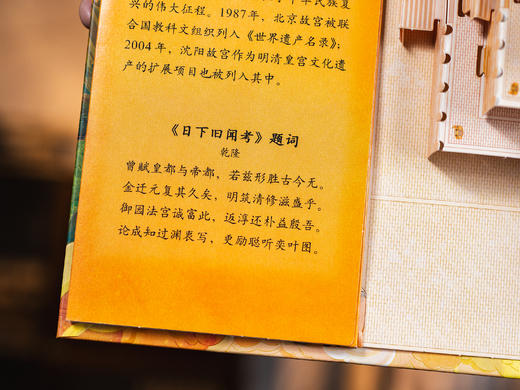 兴的伟大征程。1987年，北京故宫被联
合国教科文组织列入《世界遗产名录》；
2004年，沈阳故宫作为明清皇宫文化遗
产的扩展项目也被列入其中。
《日下旧闻考》题词
乾隆
曾赋皇都与帝都，若兹形胜古今无。
金迁元复其久矣，明筑清修滋盛乎。
御园法宫诚富此，返淳还朴益殷吾。
论成知过渊衷写，更励聪听奕叶图。